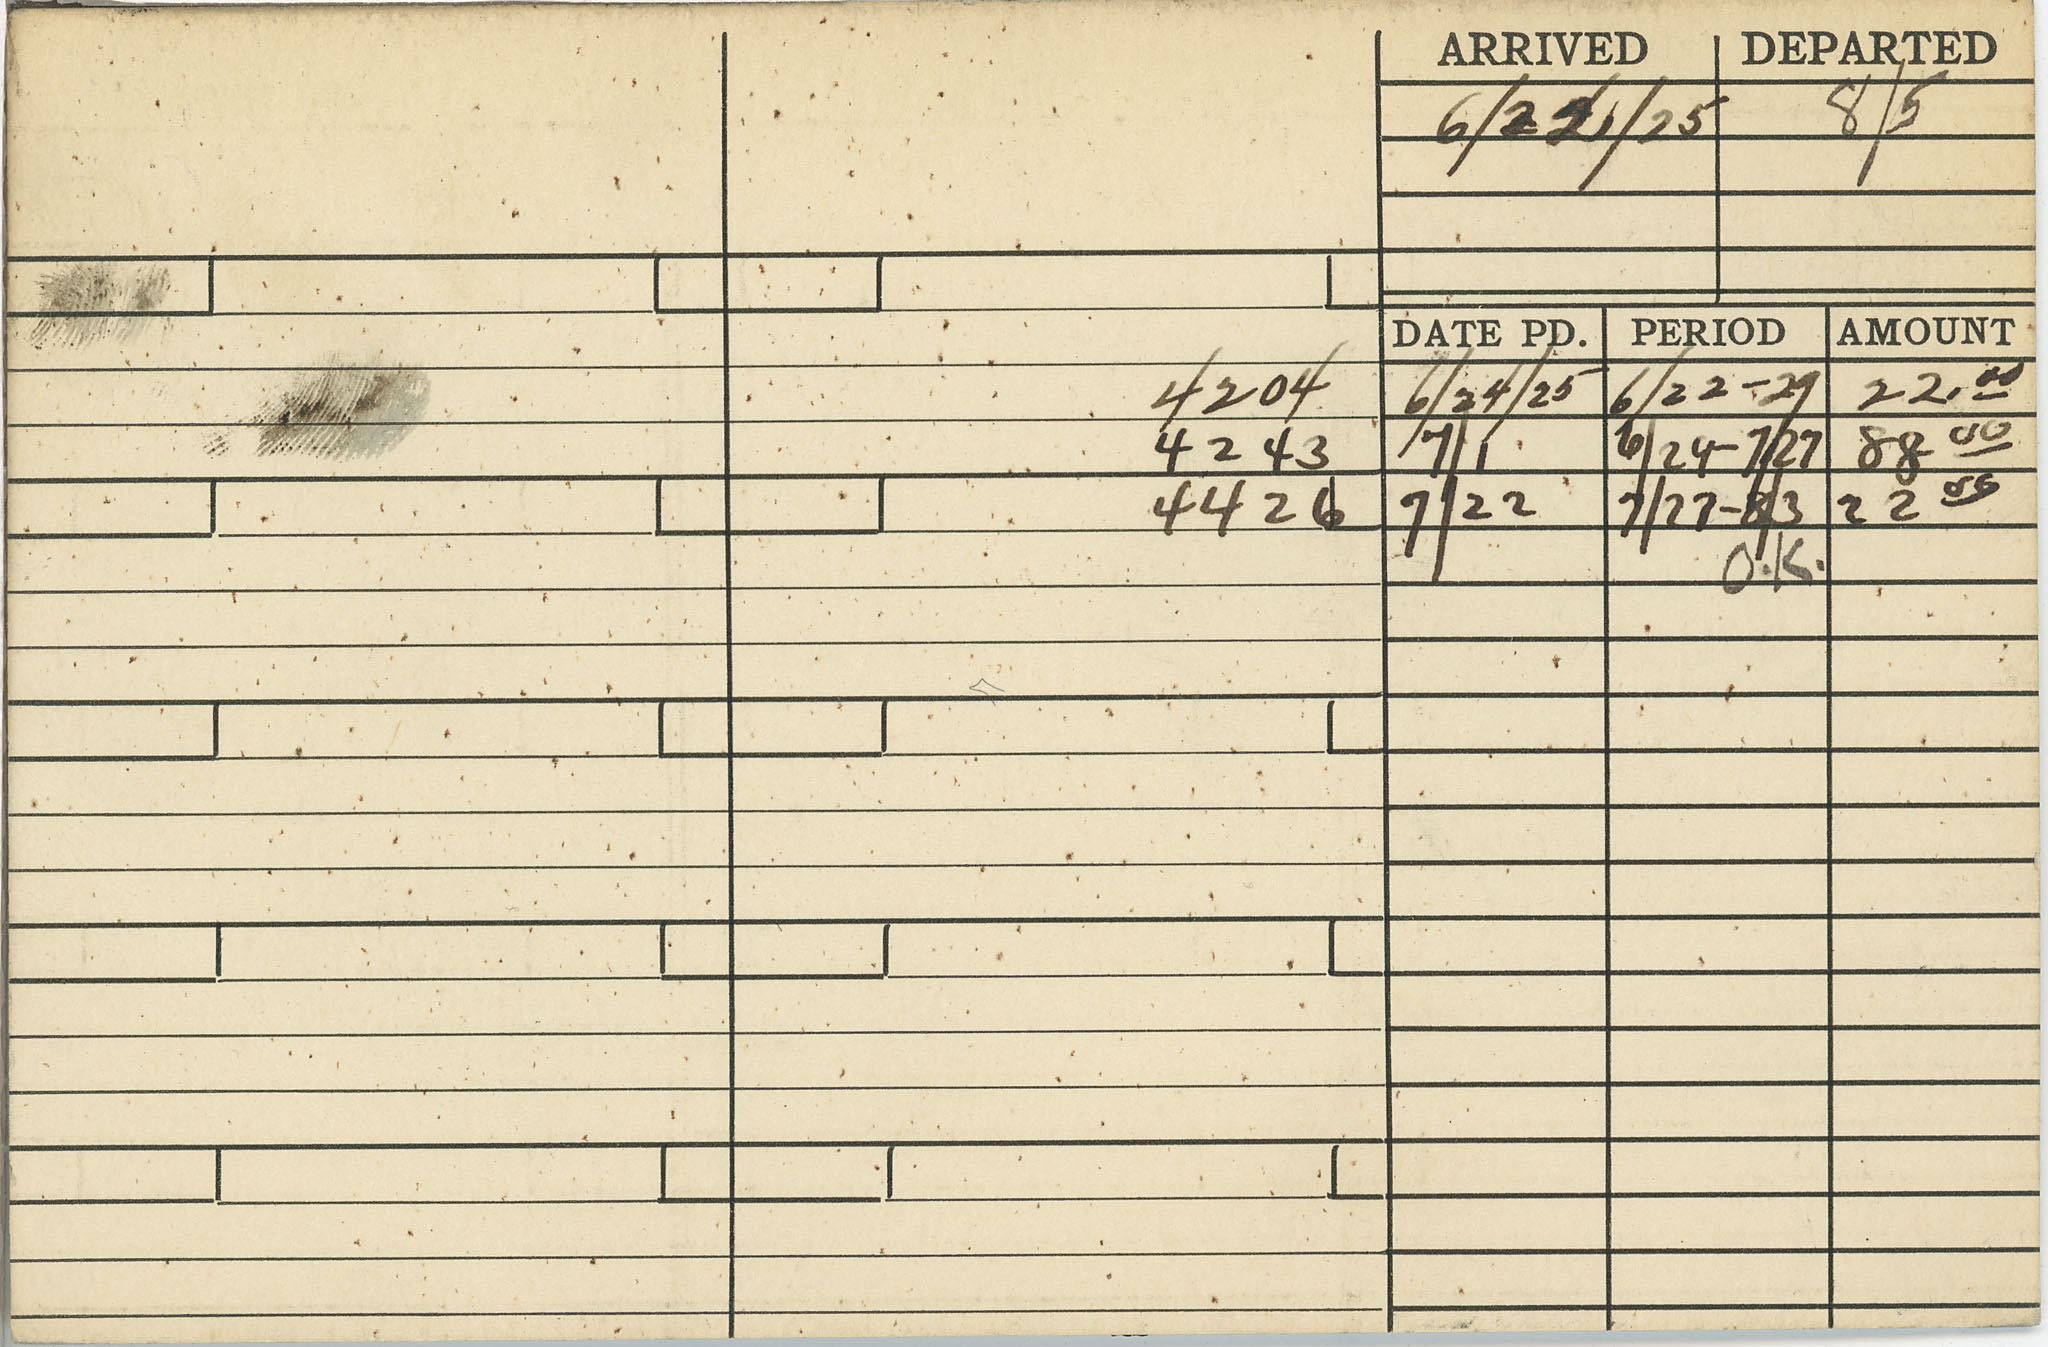 ARRIVED DEPARTED
6/22/25 8/5
DATE PD. PERIOD AMOUNT
4204 6/24/25 6/22-29 22.00
4243 7/1 6/29-7/27 88 00
4426 7/22 7/27-8/3 22 00
O.K.